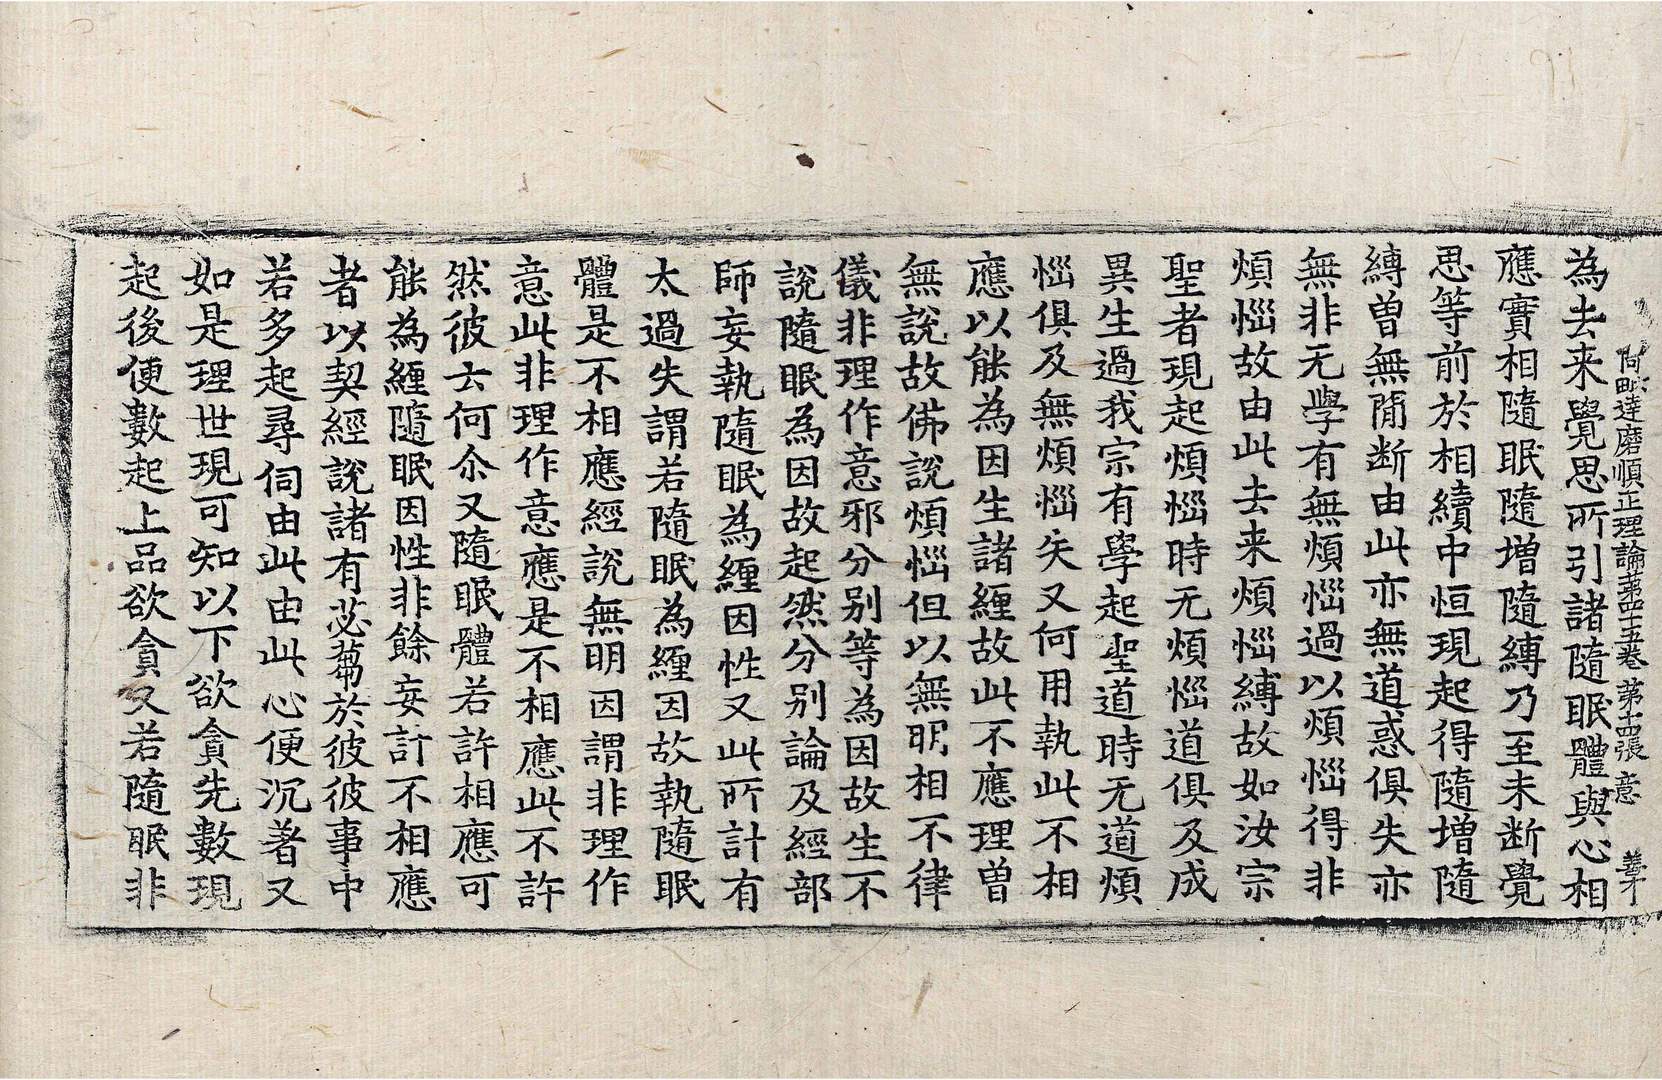 阿毗達磨順正理論第四十五卷 第十四張 意
為去来覺思所引諸隨眠體與心相
應實相隨眠隨增隨縛乃至未斷覺
思等前於相續中恒現起得隨增隨
縛曽無閒断由此亦無道惑俱失亦
無非无學有無煩惱過以煩惱得非
煩惱故由此去来煩惱縛故如汝宗
聖者現起煩惱時无煩惱道俱及成
異生過我宗有學起聖道時无道煩
惱俱及無煩惱失又何用執此不相
應以能為因生諸纒故此不應理曽
無說故佛說煩惱但以無明相不律
儀非理作意邪分別等為因故生不
說隨眠為因故起然分別論及經部
師妄執隨眠為纒因性又此所計有
太過失謂若隨眠為纒因故執隨眠
體是不相應經說無明因謂非理作
意此非理作意應是不相應此不許
然彼云何尒又隨眠體若許相應可
能為纒隨眠因性非餘妄計不相應
者以契經說諸有苾蒭於彼彼事中
若多起尋伺由此由此心便沉著又
如是理世現可知以下欲貪先數現
起後便數起上品欲貪又若隨眠非